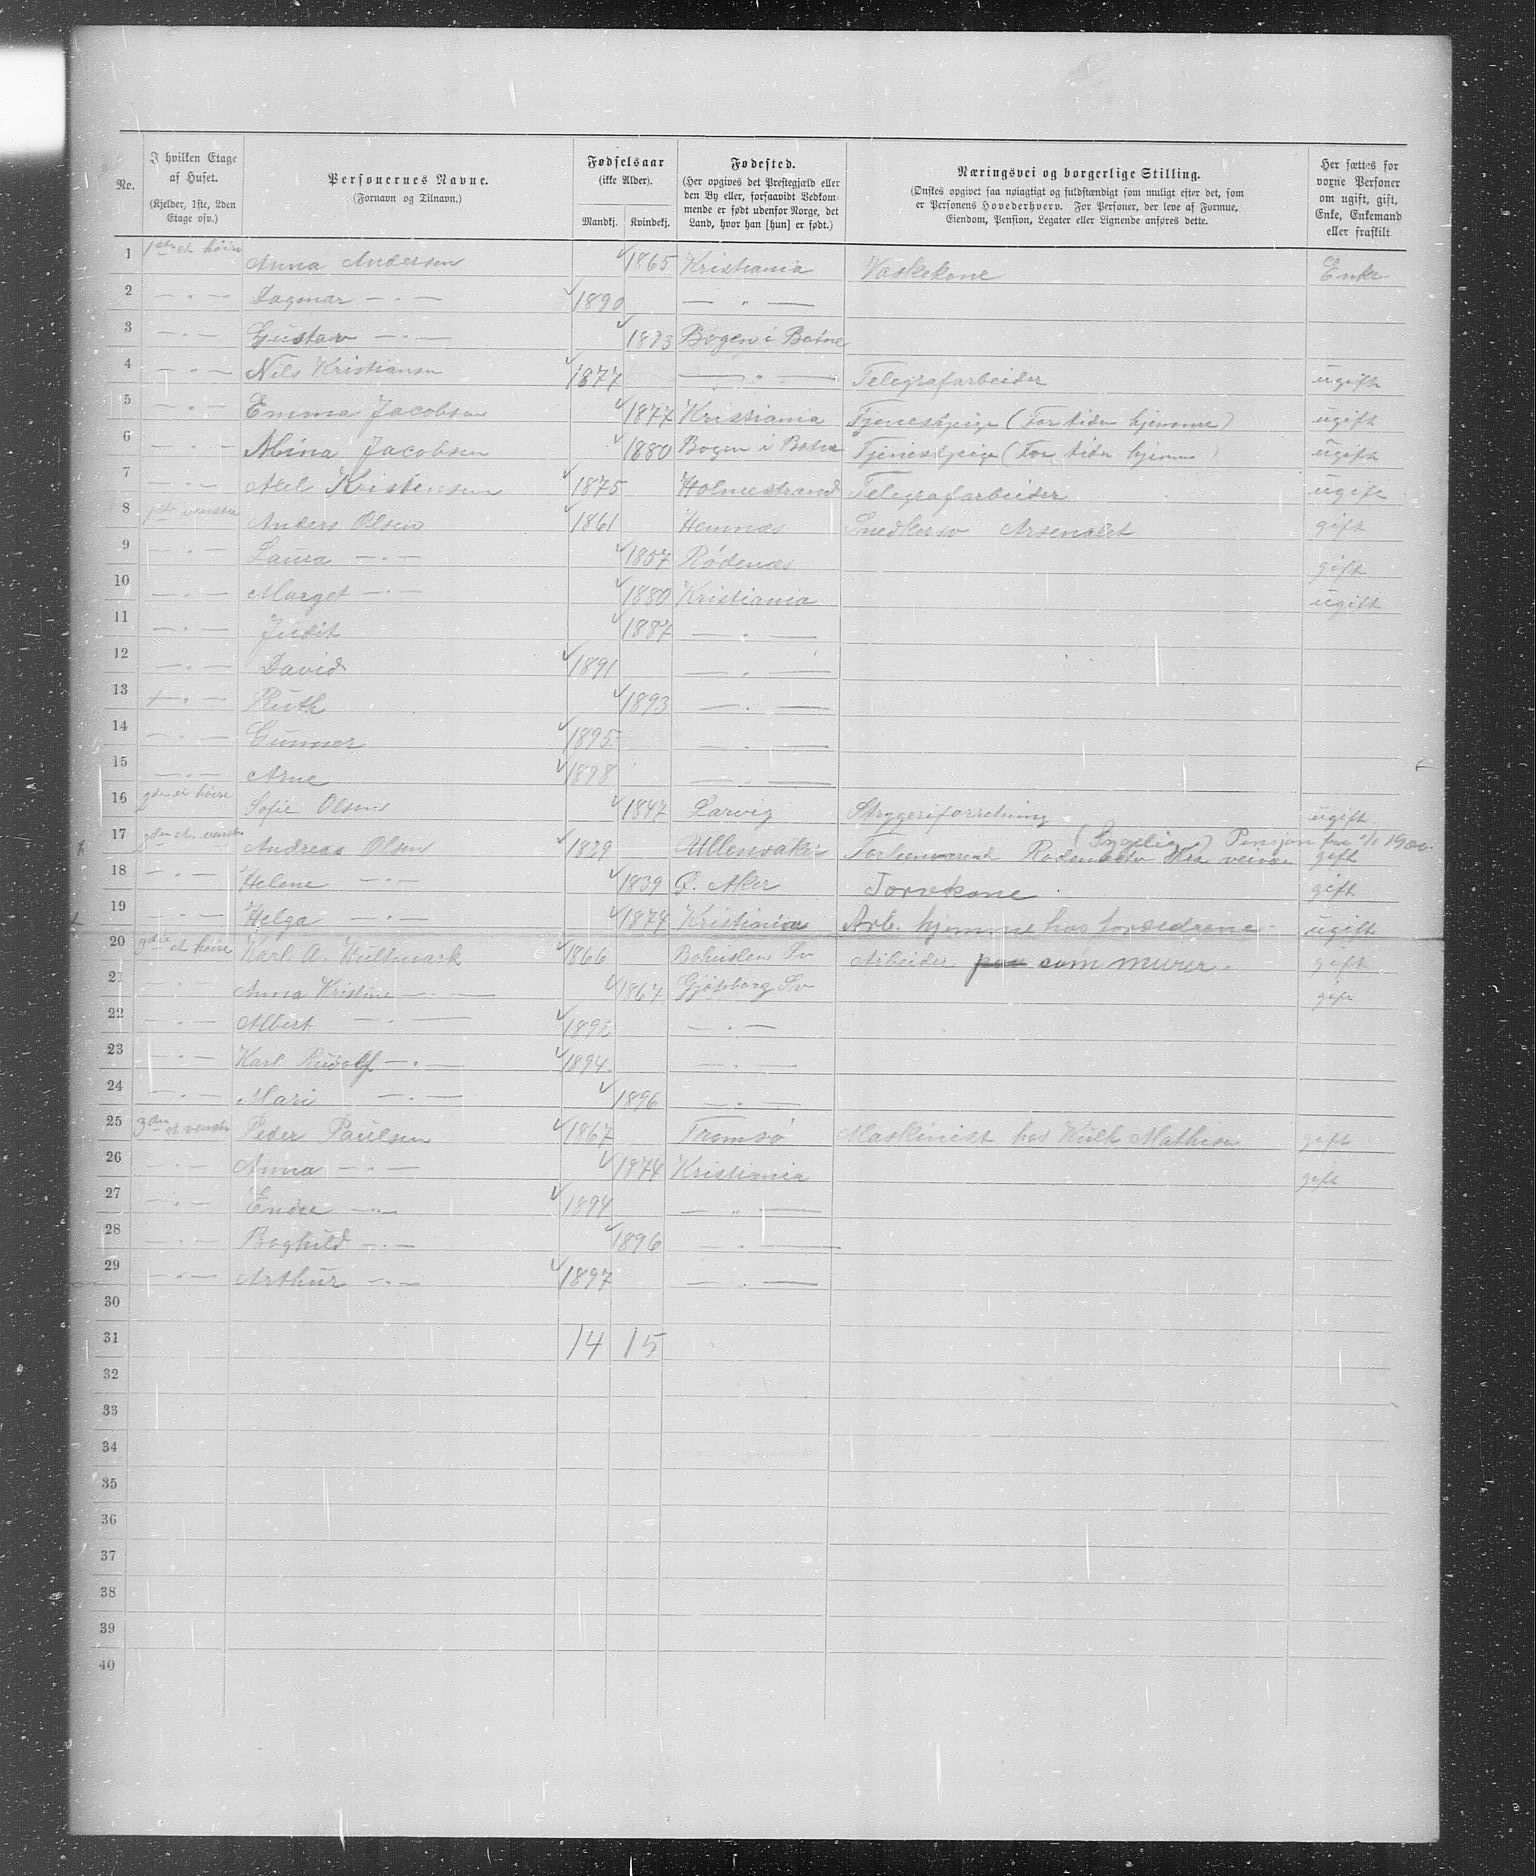 No. | I hvilken Etage af Huset. (Kjelder, 1ste, 2den Etage osv.) | Personernes Navne. (Fornavn og Tilnavn.) | Fødselsaar (ikke Alder). Mandkj. Kvindekj. | Fødested. (Her opgives det Prestegjæld eller den By eller, forsaavidt Vedkommende er født udenfor Norge, det Land, hvor han [hun] er født.) | Næringsvei og borgerlige Stilling. (Ønskes opgivet saa nøiagtigt og fuldstændigt som muligt efter det, som er Personens Hovederhverv. For Personer, der leve af Formue, Eiendom, Pension, Legater eller Lignende anføres dette. | Her sættes for voxne Personer om ugift, gift, Enke, Enkemand eller fraskilt
1 1ste et høire Anna Andersen 1865 Kristiania Vaskekone Enke
2 — " — Dagmar — " — 1890 — " —
3 — " — Gustav — " — 1893 Bogen i Botne
4 — " — Nils Kristiansen 1877 — " — Telegrafarbeider ugift
5 — " — Emma Jacobsen 1877 Kristiania Tjenestpige (For tiden hjemme) ugift
6 — " — Mina Jacobsen 1880 Bogen i Botne Tjenestpige (For tiden hjemme) ugift
7 — " — Axel Kristensen 1875 Holmestrand Telegrafarbeider ugift
8 1ste venstre Anders Olsen 1861 Hemnæs Snedker Arsenalet gift
9 — " — Laura — " — 1857 Rødenæs gift
10 — " — Marget — " — 1880 Kristiania ugift
11 — " — Judit 1887 — " —
12 — " — David 1891 — " —
13 — " — Ruth 1893 — " —
14 — " — Gunner 1895 — " —
15 — " — Arne 1898 — " —
16 2den et høire Sofie Olsen 1847 Larvig Strygeriforretning ugift
17 2den et. venstre Andreas Olsen 1829 Ullensaker Pension fra 1/1 1900 gift
18 — " — Helene — " — 1839 Ø. Aker Torvekone gift
19 — " — Helga — " — 1874 Kristiania Arb. hjemme hos forældrene ugift
20 3die et høire Karl A. Hultmark 1866 Bohuslen Sv Arbeider paa som murer. gift
21 — " — Anna Kristine — " — 1867 Gjøteborg Sv gift
22 — " — Albert — " — — " —
23 — " — Karl Rudolf — " — 1894 — " —
24 — " — Mari — " — 1896 — " —
25 3die et venstre Peder Paulsen 1867 Tromsø Maskinist hos gift
26 — " — Anna — " — 1874 Kristiania gift
27 — " — Endre — " — 1894 — " —
28 — " — Boghild — " — 1896 — " —
29 — " — Arthur — " — 1897 — " —
30
31 14 15
32
33
34
35
36
37
38
39
40